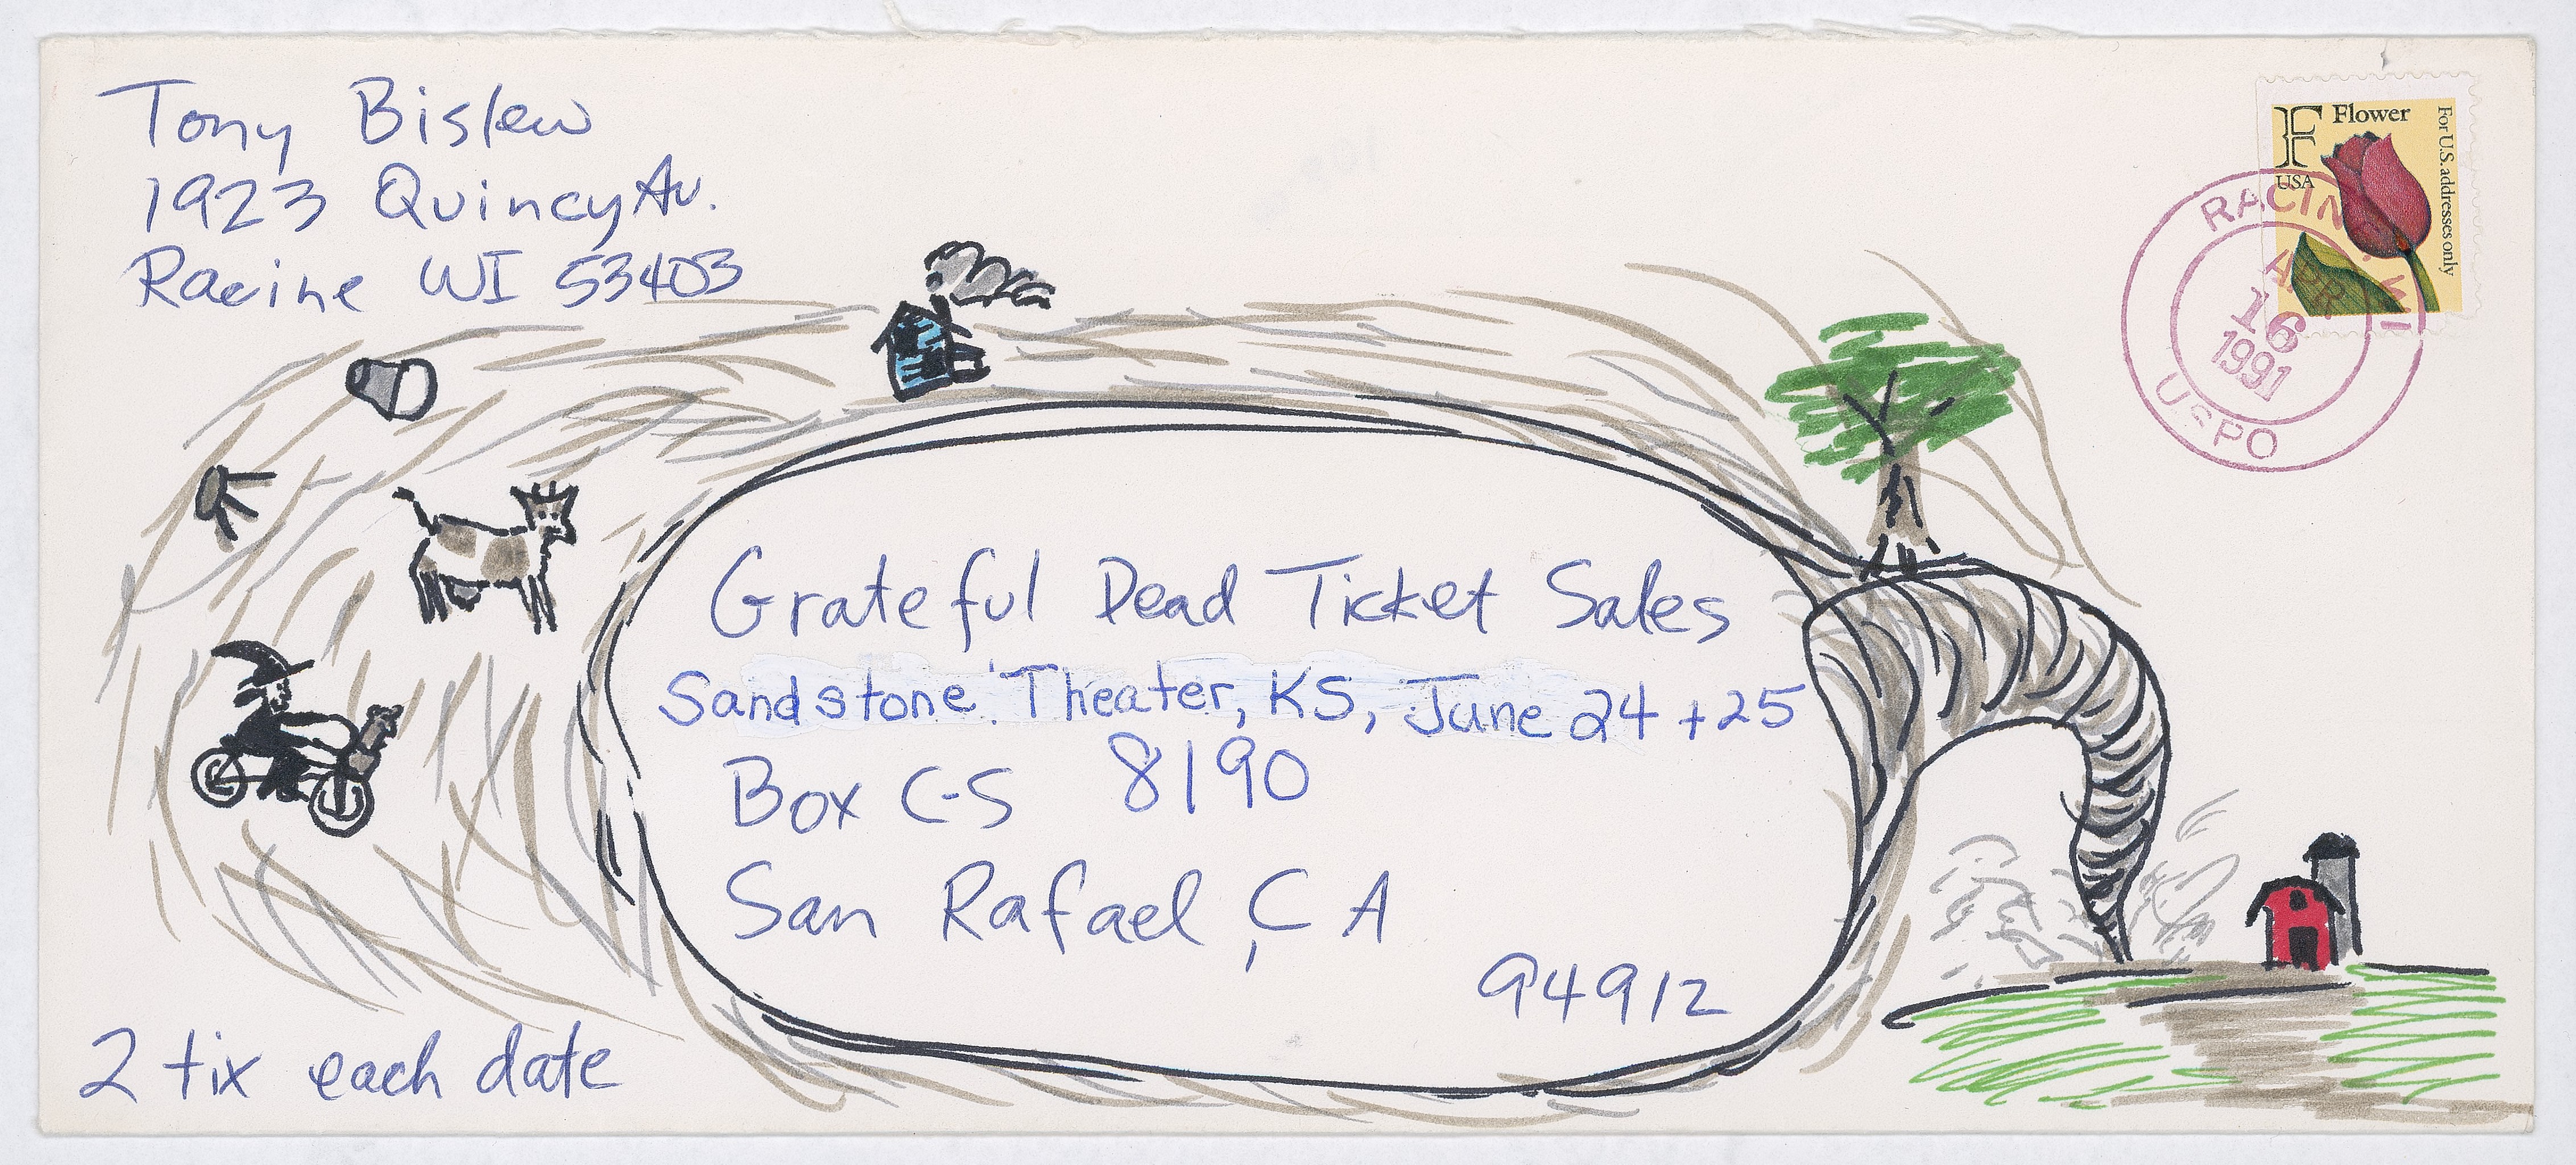 Tony Bislew
1923 Quincy Av.
Racine WI 53403
F Flower
USA
For U.S. addresses only
RACINE, WI
APR
16
1991
USPO
Grateful Dead Ticket Sales
Sandstone Theater, KS, June 24 + 25
Box C-S 8190
San Rafael, CA
94912
2 tix each date